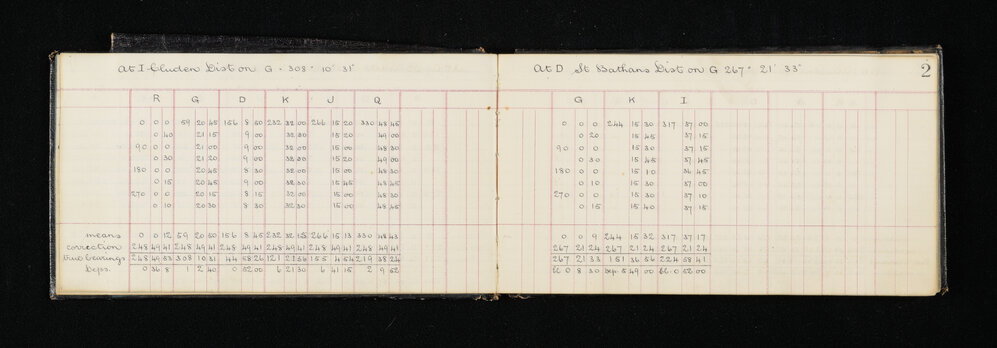 At I Cluden Dist on G - 308° 10' 31"
R G D K J Q
0 0 0 59 20 45 156 8 50 232 32 00 266 15 20 330 48 45
0 40 21 15 9 00 32 30 15 20 49 00
90 0 0 21 00 9 00 32 00 15 00 48 30
0 30 21 20 9 00 32 30 15 20 49 00
180 0 0 20 45 8 30 32 00 15 00 48 30
0 15 20 45 9 00 32 30 15 45 48 45
270 0 0 20 15 8 15 32 00 15 00 48 30
0 10 20 30 8 30 32 30 15 00 48 45
means 0 0 12 59 20 50 156 8 45 232 32 15 266 15 13 330 48 43
correction 248 49 41 248 49 41 248 49 41 248 49 41 248 49 41 248 49 41
true bearings 248 49 53 308 10 31 44 58 26 121 21 56 155 4 54 219 38 24
Deps. 0 36 8 1 2 40 0 52 00 6 21 30 6 41 15 2 9 52
At D St Bathans Dist on G 267° 21' 33"
2
G K I
0 0 0 244 15 30 317 37 00
0 20 15 45 37 15
90 0 0 15 30 37 15
0 30 15 45 37 45
180 0 0 15 10 36 45
0 10 15 30 37 00
270 0 0 15 30 37 10
0 15 15 40 37 15
0 0 9 244 15 32 317 37 17
267 21 24 267 21 24 267 21 24
267 21 33 151 36 56 224 58 41
El. 0 8 30 Dep. 5 49 00 El. 0 52 00